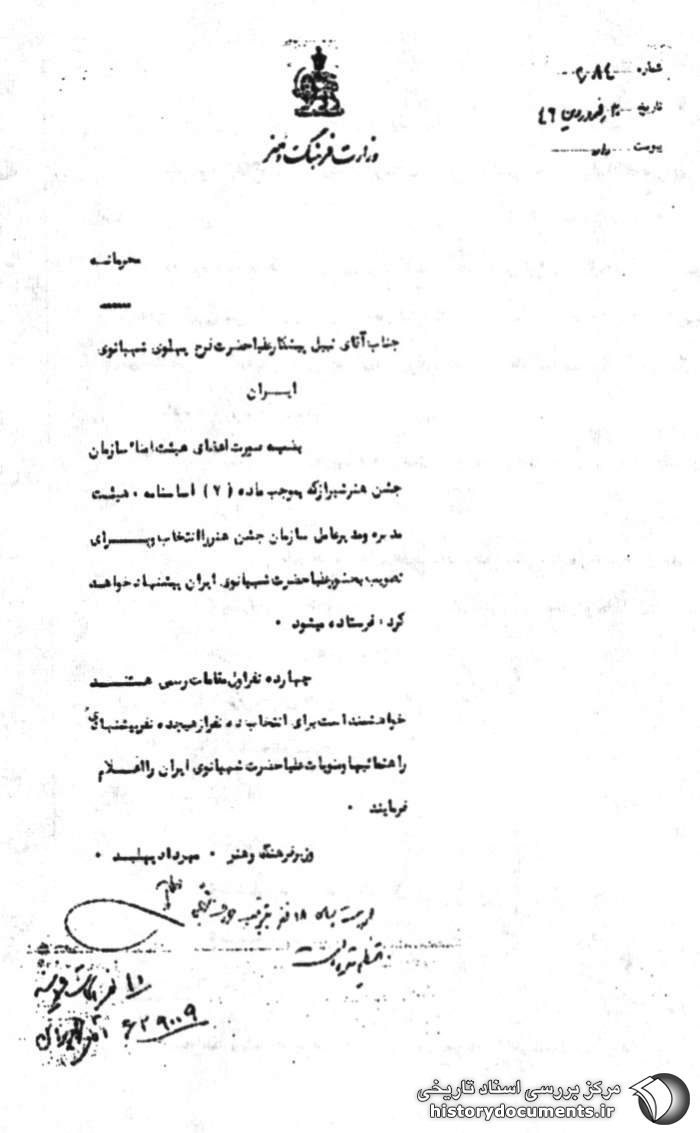 شماره ۲۰۸۴
تاریخ ۲۰ فروردین ۴۶
پیوست دارد
وزارت فرهنگ و هنر
محرمانــه
جناب آقای نبیل پیشکار علیاحضرت فرح پهلوی شهبانوی
ایــران
بضمیمه صورت اعضای هیئت امناء سازمان
جشن هنر شیراز که بموجب ماده (۷) اساسنامه ، هیئت
مدیره و مدیرعامل سازمان جشن هنر را انتخاب و بــرای
تصویب بحضور علیاحضرت شهبانوی ایران پیشنهاد خواهند
کرد ، فرستاده میشود .
چهارده نفر اول مقامات رسمی هستنــد
خواهشمند است برای انتخاب ده نفر از هیجده نفر پیشنهادی
راهنمائیها و منویات علیاحضرت شهبانوی ایران را اعــلام
فرمایند .
وزیر فرهنگ و هنر . مهرداد پهلبد .
۱۸ نفر
۶۲۹۰۰۹
مرکز بررسی اسناد تاریخی
historydocuments.ir